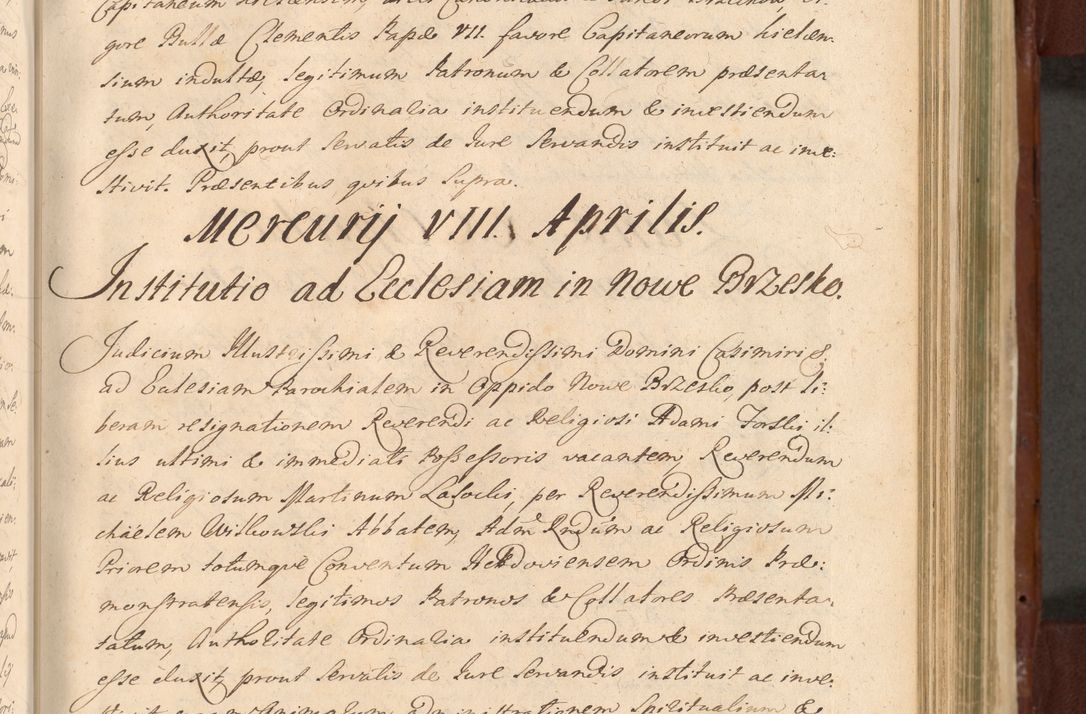 gore Bullæ Clementis Papæ VII. favore Capitaneorum Kielcen-
sium indultæ, legitimum Patronum & Collatorem præsenta-
tum, Authoritate Ordinaria instituendum & investiendum
esse duxit, prout servatis de Iure servandis instituit ac inve:
stivit. Præsentibus quibus supra.
Mercurij VIII. Aprilis.
Institutio ad Ecclesiam in Nowe Brzesko.
Judicium Illustrissimi & Reverendissimi Domini Casimiri &.
ad Ecclesiam Parochialem in Oppido Nowe Brzesko, post li:
beram resignationem Reverendi ac Religiosi Adami Forski il:
lius ultimi & immediati Possessoris vacantem, Reverendum
ac Religiosum Martinum Lasocki, per Reverendissimum Mi:
chaelem Wilkowski Abbatem, Adm Rndum ac Religiosum
Priorem totumque Conventum Hebdoviensem Ordinis Præ:
monstratensis, legitimos Patronos & Collatores Præsenta-
tatum, Authoritate Ordinaria instituendum & investiendum
esse duxit, prout servatis de Iure servandis instituit ac inve: